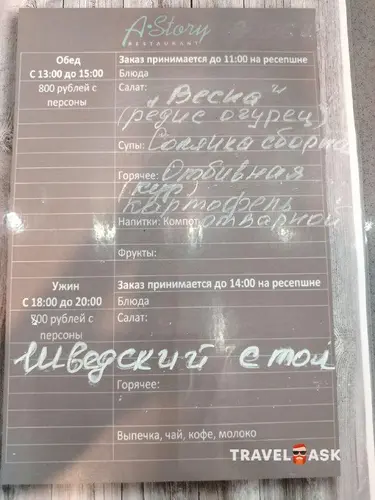 A-Story
RESTAURANT
Обед
Заказ принимается до 11:00 на ресепшне
С 13:00 до 15:00
Блюда
800 рублей с
персоны
Салат:
"Весна"
(редис огурец)
Супы: Солянка сборная
Горячее: Отбивная
(кур)
картофель
Напитки: Компот отварной
Фрукты:
Ужин
Заказ принимается до 14:00 на ресепшне
С 18:00 до 20:00
Блюда
800 рублей с
персоны
Салат:
Шведский стол
Горячее:
Выпечка, чай, кофе, молоко
TRAVEL ASK